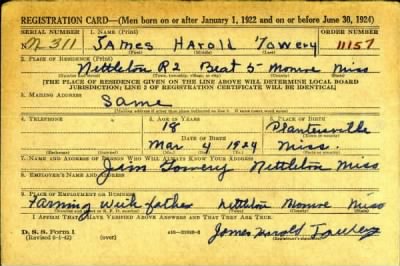 REGISTRATION CARD—(Men born on or after January 1, 1922 and on or before June 30, 1924)
SERIAL NUMBER 1. NAME (Print) ORDER NUMBER
N 311 James Harold Towery 11157
2. PLACE OF RESIDENCE (Print)
Nettleton R2 Beat 5 Monroe Miss
[THE PLACE OF RESIDENCE GIVEN ON THE LINE ABOVE WILL DETERMINE LOCAL BOARD
JURISDICTION; LINE 2 OF REGISTRATION CERTIFICATE WILL BE IDENTICAL]
3. MAILING ADDRESS
Same
4. TELEPHONE 5. AGE IN YEARS 6. PLACE OF BIRTH
18 Plantersville
DATE OF BIRTH
Mar 4 1924 Miss.
7. NAME AND ADDRESS OF PERSON WHO WILL ALWAYS KNOW YOUR ADDRESS
Jim Towery Nettleton Miss
8. EMPLOYER'S NAME AND ADDRESS
9. PLACE OF EMPLOYMENT OR BUSINESS
Farming with father Nettleton Monroe Miss
I AFFIRM THAT I HAVE VERIFIED ABOVE ANSWERS AND THAT THEY ARE TRUE.
D. S. S. Form 1
(over)
James Harold Towery